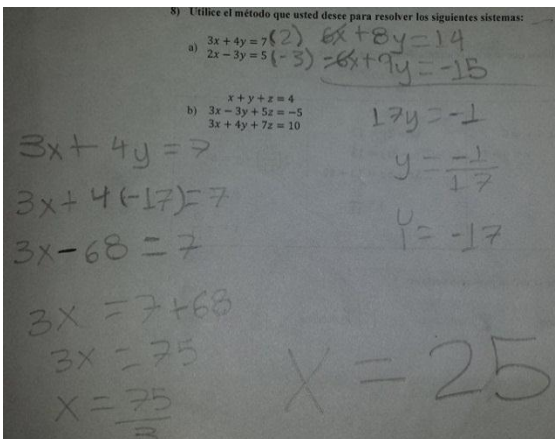 8) Utilice el método que usted desee para resolver los siguientes sistemas:
a) 3x + 4y = 7 (2) 6x + 8y = 14
2x - 3y = 5 (-3) -6x + 9y = -15
x + y + z = 4
b) 3x - 3y + 5z = -5
3x + 4y + 7z = 10
17y = -1
y = -1/17
y = -17
3x + 4y = 7
3x + 4(-17) = 7
3x - 68 = 7
3x = 7 + 68
3x = 75
x = 75/3
x = 25